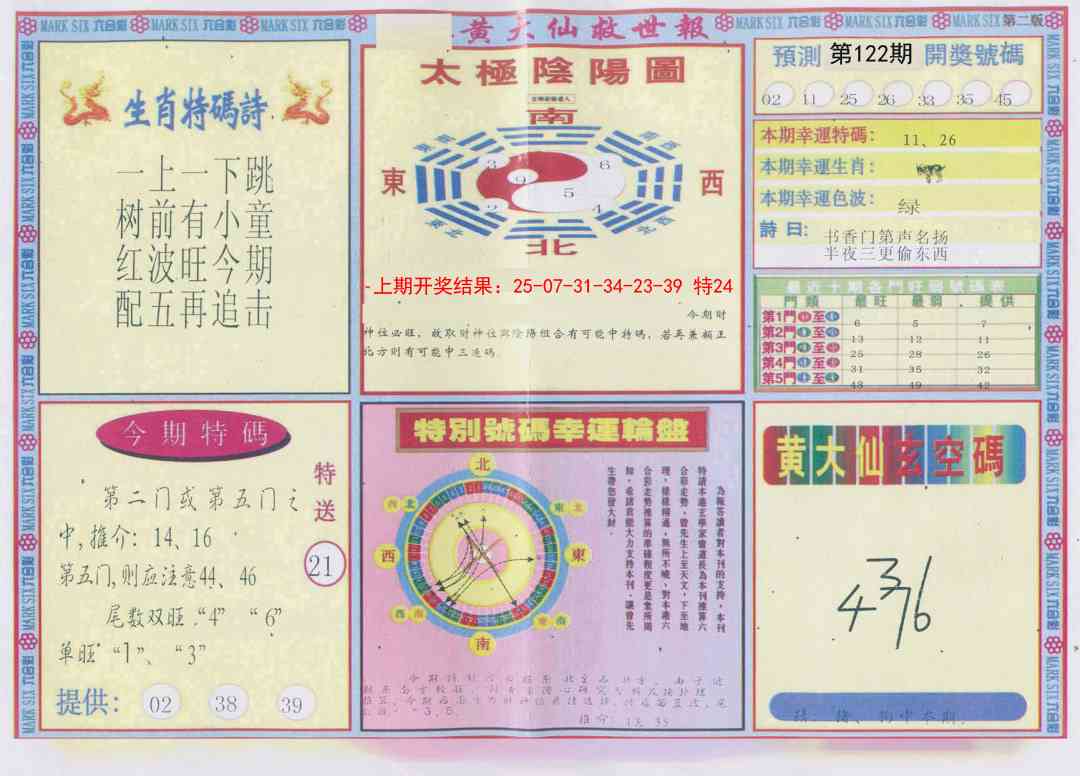 MARK SIX 六合彩 MARK SIX 六合彩 MARK SIX 六合彩
黄大仙救世報
MARK SIX 六合彩 MARK SIX 六合彩 MARK SIX 第二版
生肖特碼詩
一上一下跳
树前有小童
红波旺今期
配五再追击
太極陰陽圖
南
東
西
北
3
6
9
5
2
4
上期开奖结果: 25-07-31-34-23-39 特24
今期財
神位必旺，故取財神位與陰陽组合有可能中特碼，若再兼顧正
北方則有可能中三连碼。
預測 第122期 開獎號碼
02 11 25 26 33 35 45
本期幸運特碼： 11、26
本期幸運生肖：
本期幸運色波： 绿
詩曰: 书香门第声名扬
半夜三更偷东西
最近十期各門旺弱號碼表
門類 最旺 最弱 提供
第1門 至 6 5 7
第2門 至 13 12 11
第3門 至 25 28 26
第4門 至 31 35 32
第5門 至 43 49 42
今期特碼
特送
21
第二门或第五门之
中,推介: 14、16
第五门,则应注意44、46
尾数双旺“4” “6”
单旺“1”、“3”
提供: 02 38 39
特別號碼幸運輪盤
北
東北
東
南
西南
西
西北
為報答讀者對本刊的支持，本刊
特請本港玄學家曾道長為本刊推算六
合彩走勢，曾先生上至天文，下至地
理，樣樣精通，無所不曉，對本港六
合彩走勢推算的準確程度更是衆所周
知，希諸君能大力支持本刊，讓曾先
生帶您發大財．
黄大仙玄空碼
4376